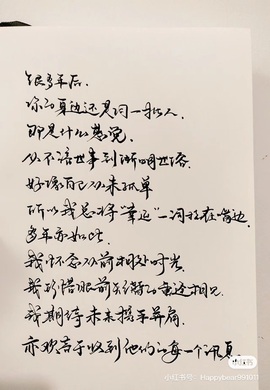 很多年后.
你的身边还是同一批人.
那是什么感觉.
从不谙世事到渐明世俗
好像自己从未孤单
所以我总将“幸运”一词挂在嘴边.
多年亦如此.
我怀念从前相处时光
我珍惜眼前关得的重逢相见
我期待未来携手并肩.
亦欢喜于收到他们的每一个讯息.
小红书
小红书号: Happybear991011